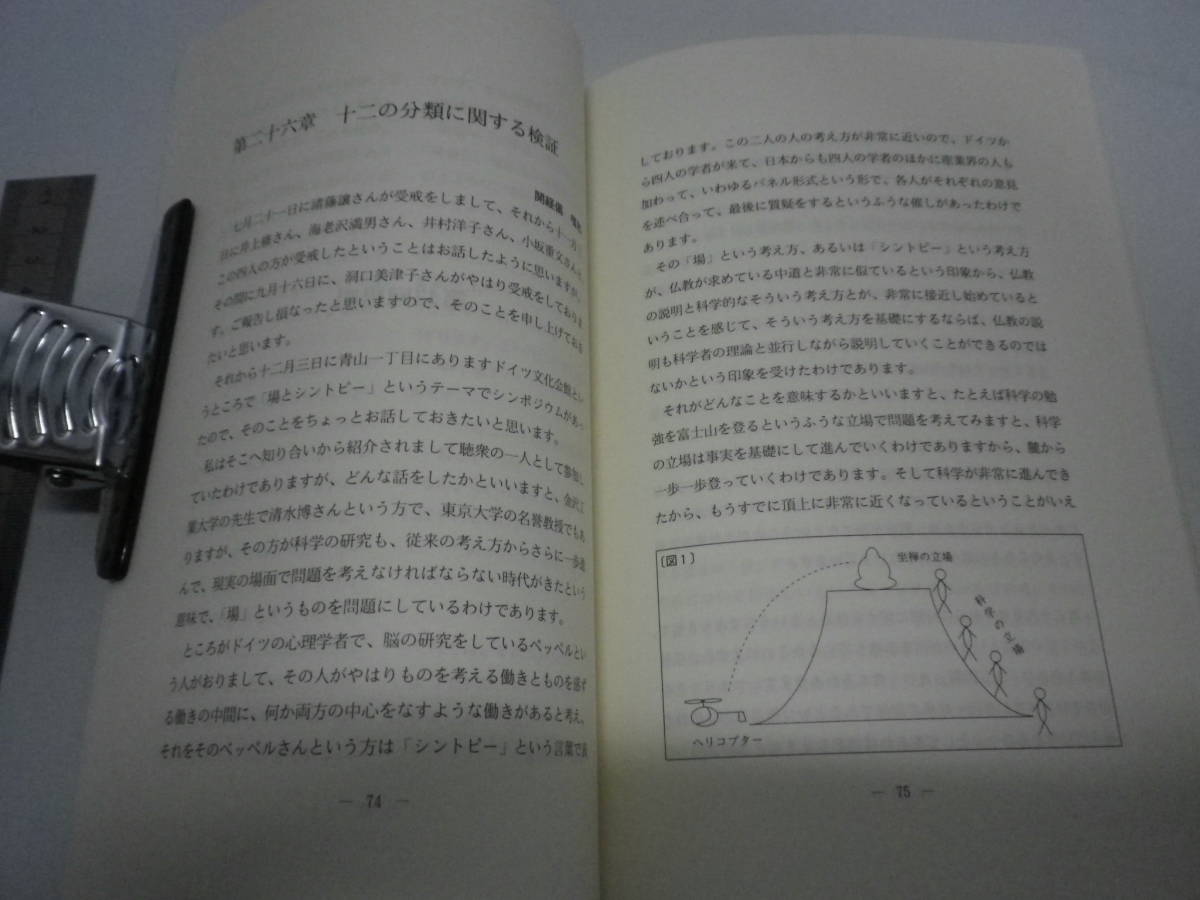 第二十六章　十二の分類に関する検証
開経偈
七月二十一日に
藤譲さんが受戒をしまして、それから十一月
日に井上
さん、海老沢満男さん、井村洋子さん、小坂重文さん
この四人の方が受戒したということはお話したように思いますが、
その間に九月十六日に、洞口美津子さんがやはり受戒をしておりま
す。ご報告し損なったと思いますので、そのことを申し上げておき
たいと思います。
それから十二月三日に青山一丁目にありますドイツ文化会館とい
うところで「場とシントピー」というテーマでシンポジウムがあっ
たので、そのことをちょっとお話しておきたいと思います。
私はそこへ知り合いから紹介されまして聴衆の一人として参加し
ていたわけでありますが、どんな話をしたかといいますと、金沢工
業大学の先生で清水博さんという方で、東京大学の名誉教授でもあ
りますが、その方が科学の研究も、従来の考え方からさらに一歩進
んで、現実の場面で問題を考えなければならない時代がきたという
意味で、「場」というものを問題にしているわけであります。
ところがドイツの心理学者で、脳の研究をしているペッペルとい
う人がおりまして、その人がやはりものを考える働きとものを感ず
る働きの中間に、何か両方の中心をなすような働きがあると考え、
それをそのペッペルさんという方は「シントピー」という言葉で表
— 74 —
しております。この二人の人の考え方が非常に近いので、ドイツか
ら四人の学者が来て、日本からも四人の学者のほかに産業界の人も
加わって、いわゆるパネル形式という形で、各人がそれぞれの意見
を述べ合って、最後に質疑をするというふうな催しがあったわけで
あります。
その「場」という考え方、あるいは「シントピー」という考え方
が、仏教が求めている中道と非常に似ているという印象から、仏教
の説明と科学的なそういう考え方とが、非常に接近し始めていると
いうことを感じて、そういう考え方を基礎にするならば、仏教の説
明も科学者の理論と並行しながら説明していくことができるのでは
ないかという印象を受けたわけであります。
それがどんなことを意味するかといいますと、たとえば科学の勉
強を富士山を登るというふうな立場で問題を考えてみますと、科学
の立場は事実を基礎にして進んでいくわけでありますから、麓から
一歩一歩登っていくわけであります。そして科学が非常に進んでき
たから、もうすでに頂上に非常に近くなっているということがいえ
〔図1〕
坐禅の立場
科学の立場
ヘリコプター
— 75 —